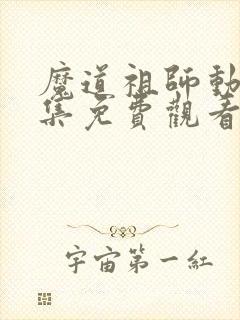 魔道祖師動
集免費觀看
宇宙第一紅